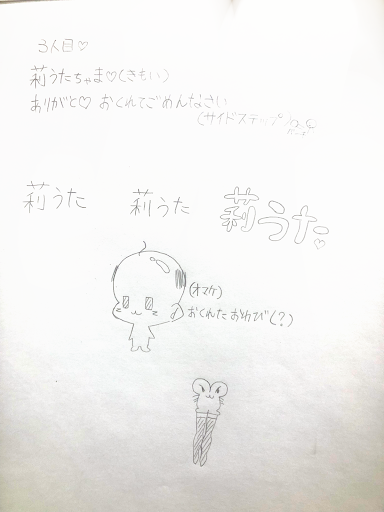 3人目♡
莉うたちゃま♡(きもい)
ありがと♡ おくれてごめんなさい
(サイドステップ
莉うた
莉うた
莉うた♡
(オマケ)
おくれたおわび(?)